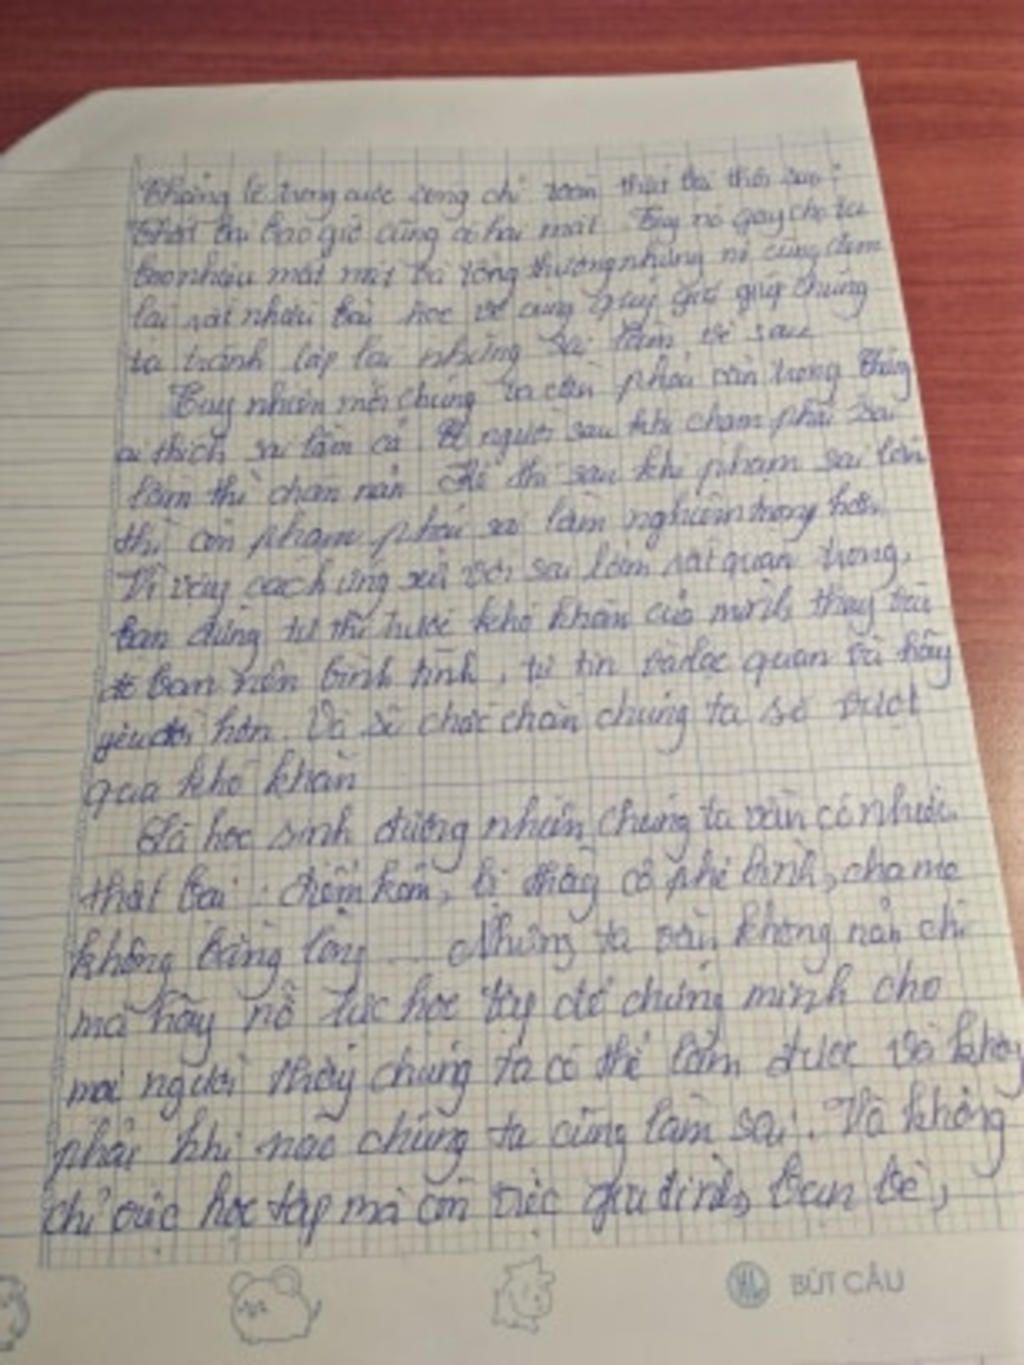 Chẳng lẽ trong cuộc sống chỉ toàn thất bại thôi sao?
Thất bại bao giờ cũng có hai mặt. Tuy nó gây cho ta
bao nhiêu mất mát và tổng thương nhưng nó cũng đem
lại rất nhiều bài học vô cùng quý giá giúp chúng
ta tránh lặp lại những sai lầm về sau
Tuy nhiên mỗi chúng ta cần phải cẩn trọng Chẳng
ai thích sai lầm cả người sau khi phạm phải sai
lầm thì chán nản Kẻ thì sau khi phạm sai lầm
thì còn phạm phải sai lầm nghiêm trọng hơn.
Vì vậy cách ứng xử với sai lầm rất quan trọng,
bạn đừng từ thì trước khó khăn của mình thay vào
đó bạn nên bình tĩnh, tự tin và lạc quan và hãy
yêu đời hơn. Và sẽ chắc chắn chúng ta sẽ vượt
qua khó khăn
Là học sinh đương nhiên chúng ta vẫn có nhiều
thất bại: điểm kém, bị thầy cô phê bình, cha mẹ
không bằng lòng ... Nhưng ta vẫn không nản chí
mà hãy nỗ lực học tập để chứng minh cho
mọi người thấy chúng ta có thể làm được và không
phải khi nào chúng ta cũng làm sai. Và không
chỉ việc học tập mà còn việc gia đình, bạn bè,
BÚT CÂU